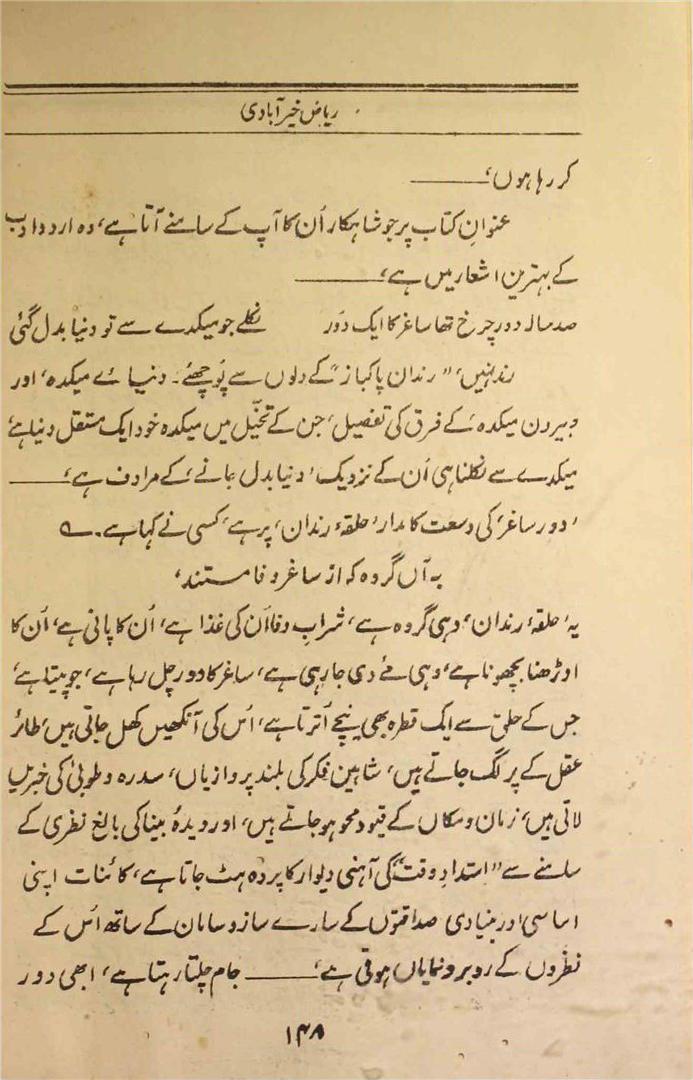 ریاض خیرآبادی
کر رہا ہوں، ———
عنوانِ کتاب پر جو شاہکار اُن کا آپ کے سامنے آتا ہے، وہ اردو ادب
کے بہترین اشعار میں ہے، ———
صد سالہ دورِ چرخ تھا ساغر کا ایک دَور نکلے جو میکدے سے تو دنیا بدل گئی
رند نہیں، "رندان پاکباز" کے دلوں سے پوچھئے۔ دنیائے میکدہ، اور
بیرون میکدہ، کے فرق کی تفصیل، جن کے تخیّل میں میکدہ خود ایک مستقل دنیا ہے،
میکدے سے نکلنا ہی اُن کے نزدیک، دنیا بدل جانے، کے مرادف ہے، ———
'دور ساغر، کی وسعت کا مدار، حلقۂ رندان، پر ہے، کسی نے کہا ہے۔ ؎
بہ آں گروہ کہ از ساغر وفا مستند،
یہ، حلقۂ رندان، وہی گروہ ہے، شرابِ وفا اُن کی غذا ہے، اُن کا پانی ہے، اُن کا
اوڑھنا بچھونا ہے، وہی مے دی جا رہی ہے، ساغر کا دور چل رہا ہے، جو پیتا ہے،
جس کے حلق سے ایک قطرہ بھی نیچے اُترتا ہے، اُس کی آنکھیں کھل جاتی ہیں، طائر
عقل کے پر لگ جاتے ہیں، شاہین فکر کی بلند پروازیاں، سدرہ و طوبیٰ کی خبریں
لاتی ہیں، زمان و مکاں کے قیود محو ہو جاتے ہیں، اور دیدۂ بینا کی بالغ نظری کے
سامنے سے "امتدادِ وقت" کی آہنی دیوار کا پردہ ہٹ جاتا ہے، کائنات اپنی
اساسی اور بنیادی صداقتوں کے سارے ساز و سامان کے ساتھ اُس کے
نظروں کے روبرو نمایاں ہوتی ہے، ——— جام چلتا رہتا ہے، ابھی دور
۱۴۸